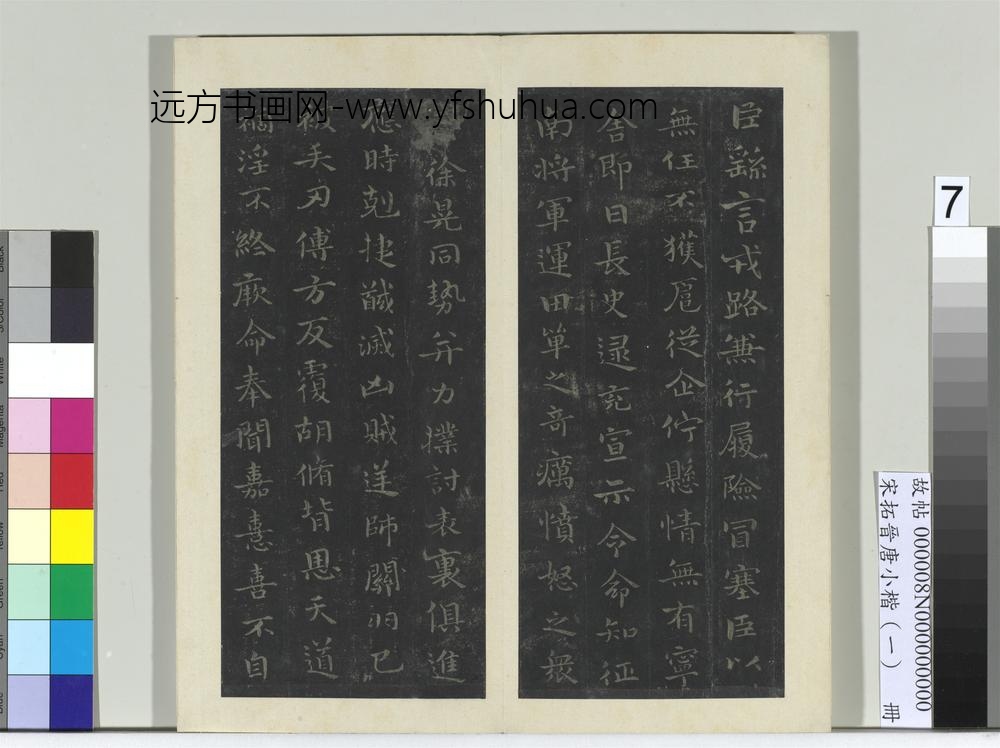 远方书画网-www.yfshuhua.com
臣繇言戎路兼行履險冒塞臣以
無任不獲扈從企佇懸情無有寧
舍即日長史逯充宣示令命知征
南將軍運田單之奇厲憤怒之衆
徐晃同勢并力撲討表裏俱進
應時剋捷馘滅凶賊逆師關羽已
被矢刃傅方反覆胡脩背恩天道
禍淫不終厥命奉聞嘉憙喜不自
7
故帖 000008N000000000
宋拓晉唐小楷(一) 冊
Black
3/Color
White
Magenta
Red
Yellow
Green
Cyan
Blue